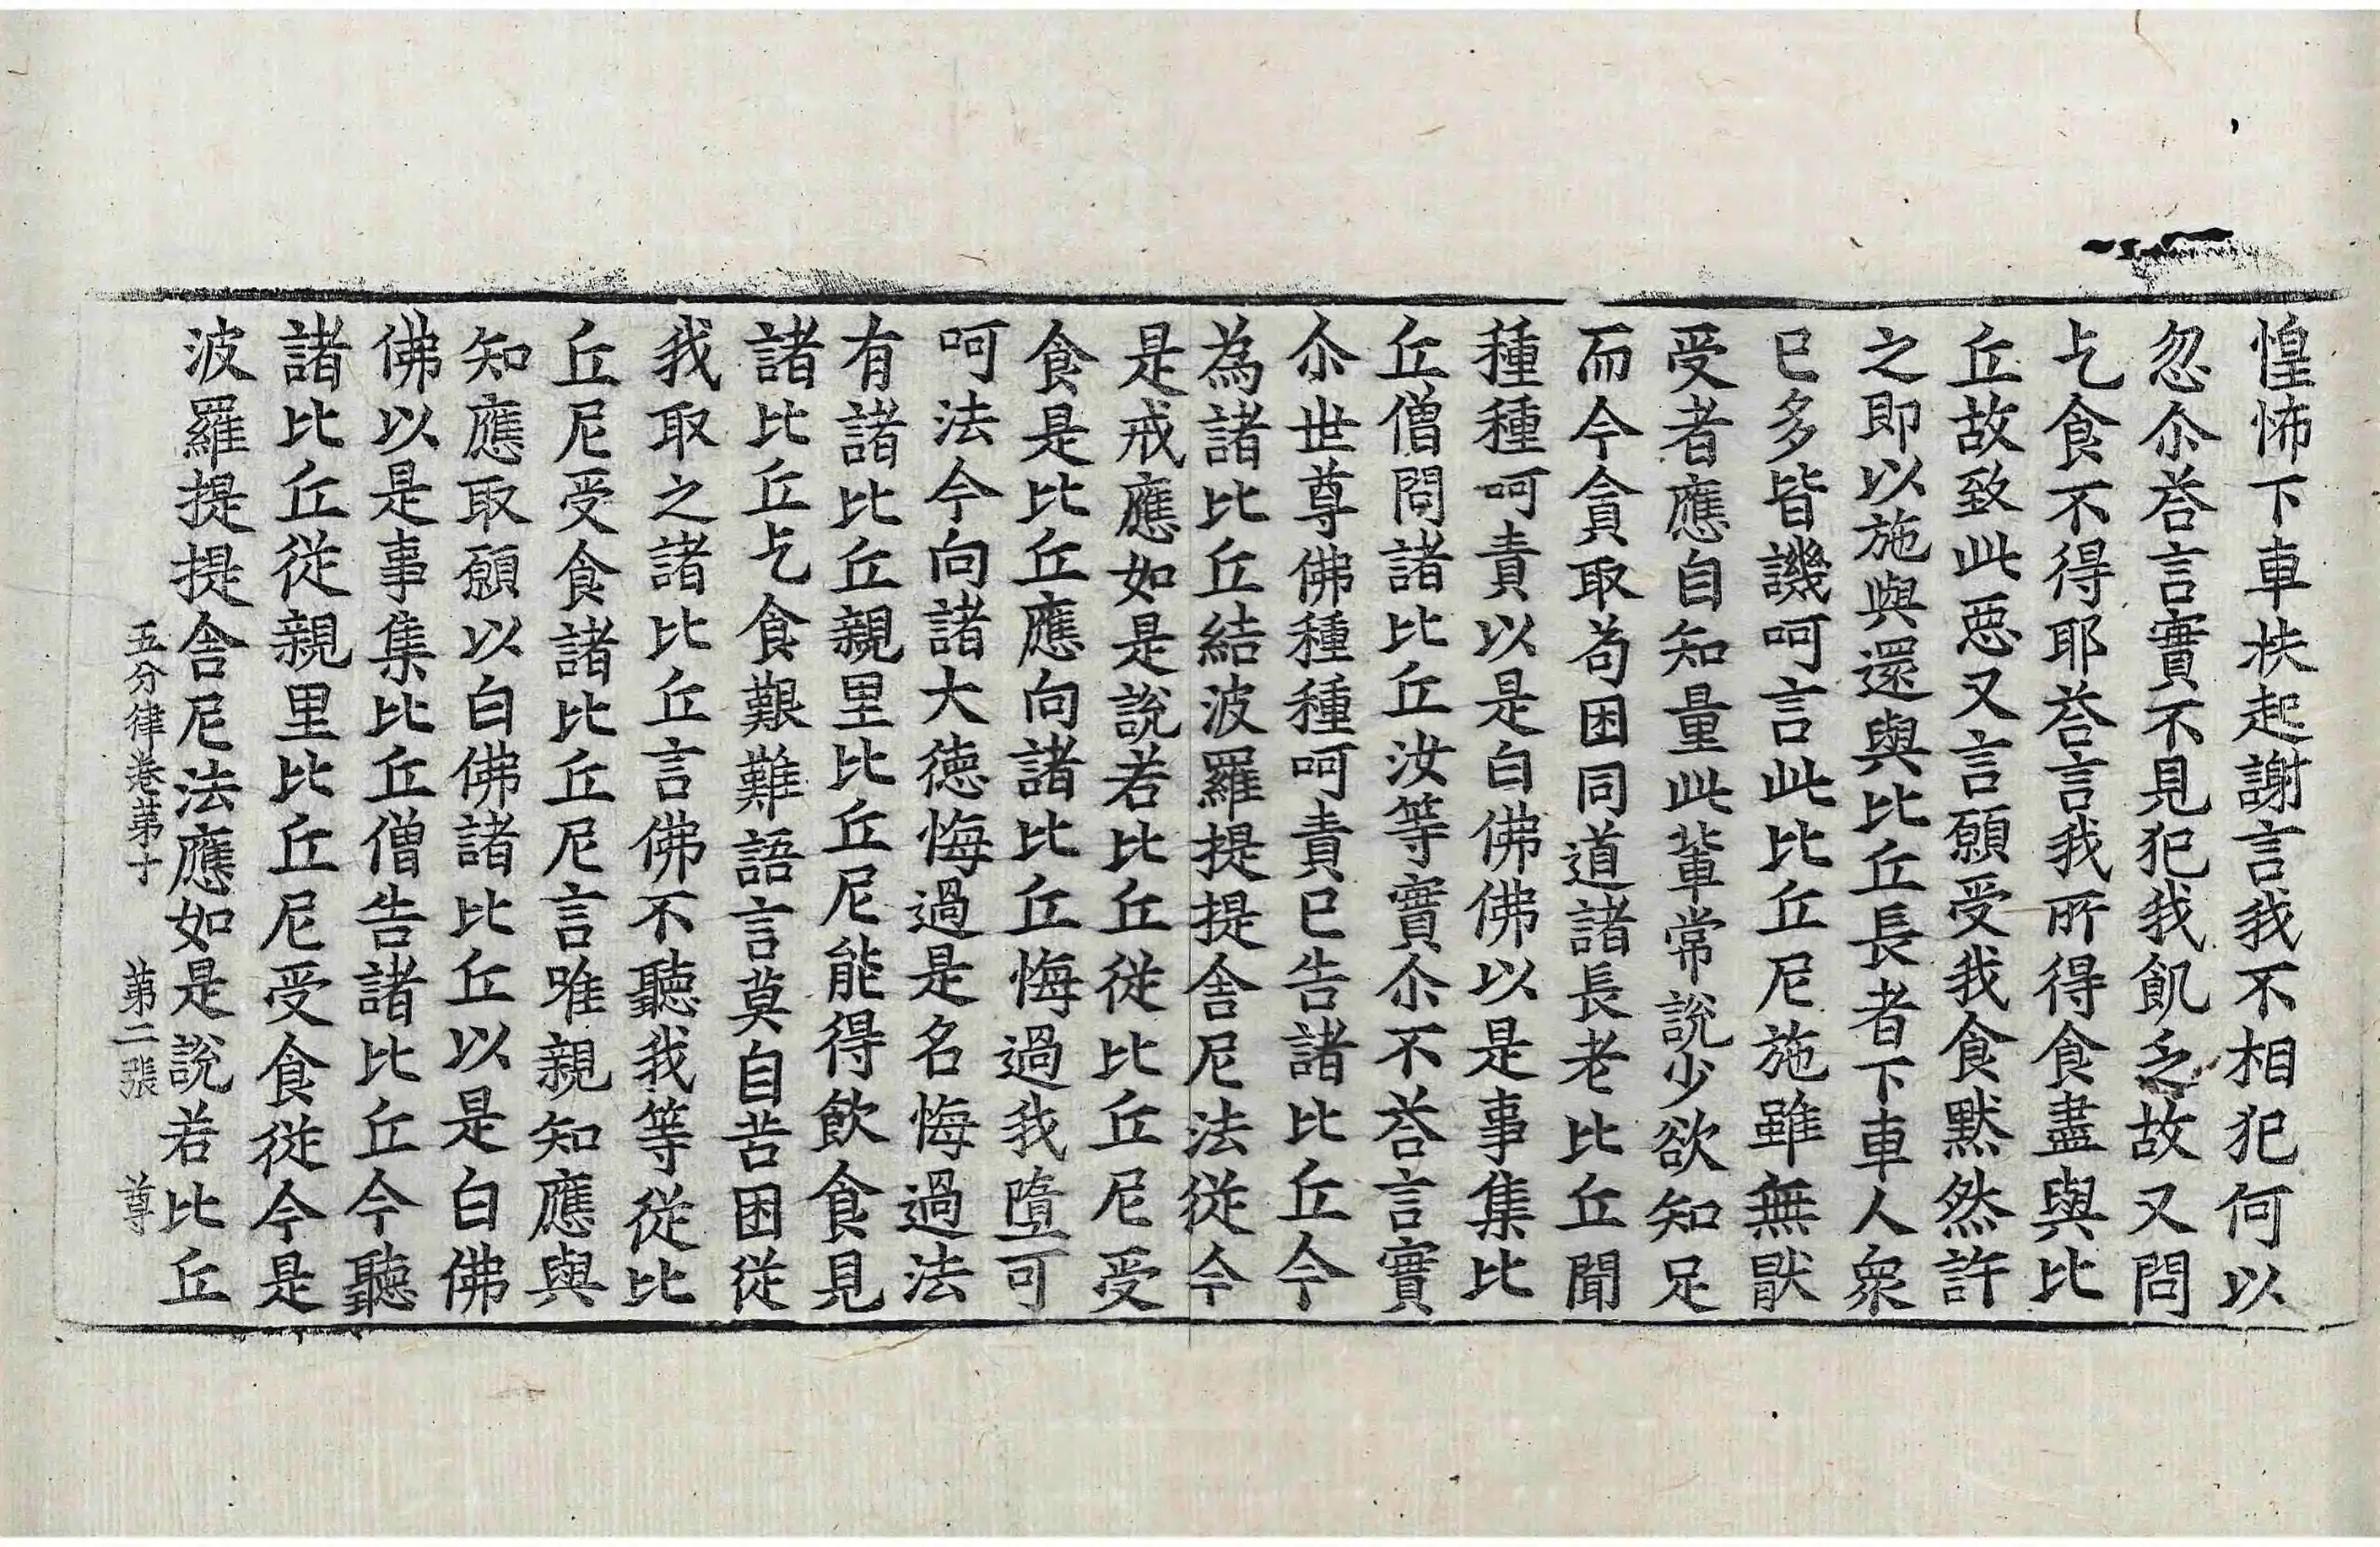 惶怖下車扶起謝言我不相犯何以
忽尒荅言實不見犯我飢乏故又問
乞食不得耶荅言我所得食盡與比
丘故致此惡又言願受我食黙然許
之即以施與還與比丘長者下車人衆
已多皆譏呵言此比丘尼施雖無猒
受者應自知量此輩常說少欲知足
而今貪取茍困同道諸長老比丘聞
種種呵責以是白佛佛以是事集比
丘僧問諸比丘汝等實尒不荅言實
尒世尊佛種種呵責已告諸比丘今
為諸比丘結波羅提提舍尼法從今
是戒應如是說若比丘從比丘尼受
食是比丘應向諸比丘悔過我墮可
呵法今向諸大徳悔過是名悔過法
有諸比丘親里比丘尼能得飲食見
諸比丘乞食艱難語言莫自苦困從
我取之諸比丘言佛不聽我等從比
丘尼受食諸比丘尼言唯親知應與
知應取願以白佛諸比丘以是白佛
佛以是事集比丘僧告諸比丘今聽
諸比丘從親里比丘尼受食從今是
波羅提提舍尼法應如是說若比丘
五分律卷苐十 苐二張 尊